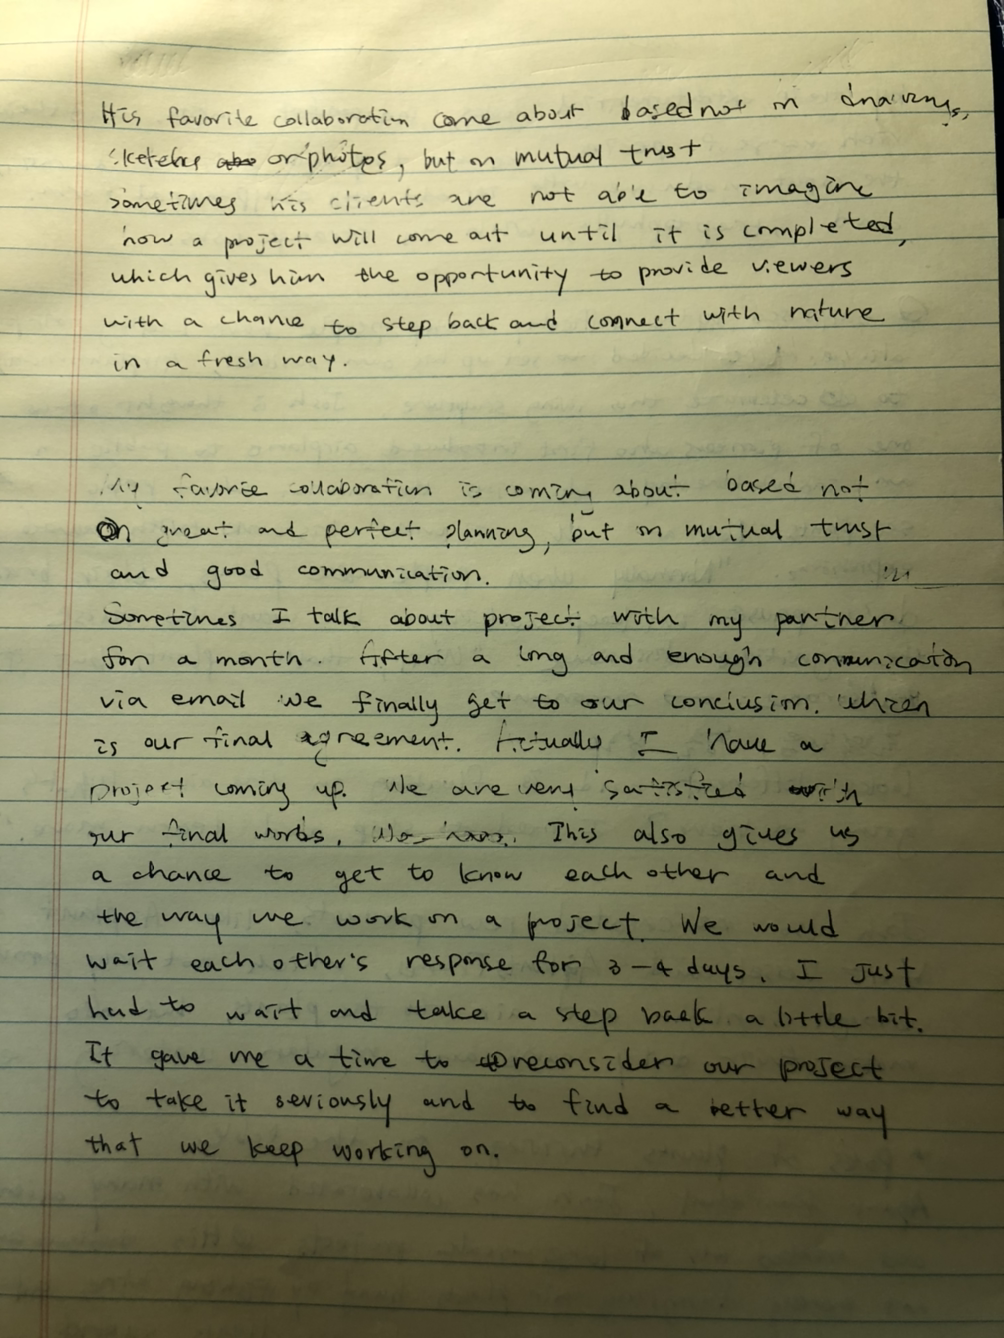 His favorite collaboration come about based not in drawings,
sketches or photos, but on mutual trust
sometimes his clients are not able to imagine
how a project will come out until it is completed,
which gives him the opportunity to provide viewers
with a chance to step back and connect with nature
in a fresh way.
My favorite collaboration is coming about based not
On great and perfect planning, but on mutual trust
and good communication.
Sometimes I talk about project with my partner
for a month. After a long and enough communication
via email we finally get to our conclusion. which
is our final agreement. Actually I have a
project coming up. We are very satisfied with
our final works. This also gives us
a chance to get to know each other and
the way we work on a project. We would
wait each other's response for 3-4 days. I just
had to wait and take a step back a little bit.
It gave me a time to reconsider our project
to take it seriously and to find a better way
that we keep working on.